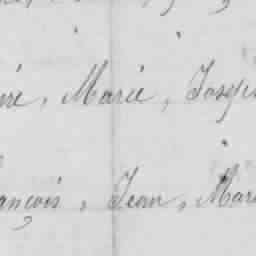 Marie, Joseph
ançois, Jean, Mari